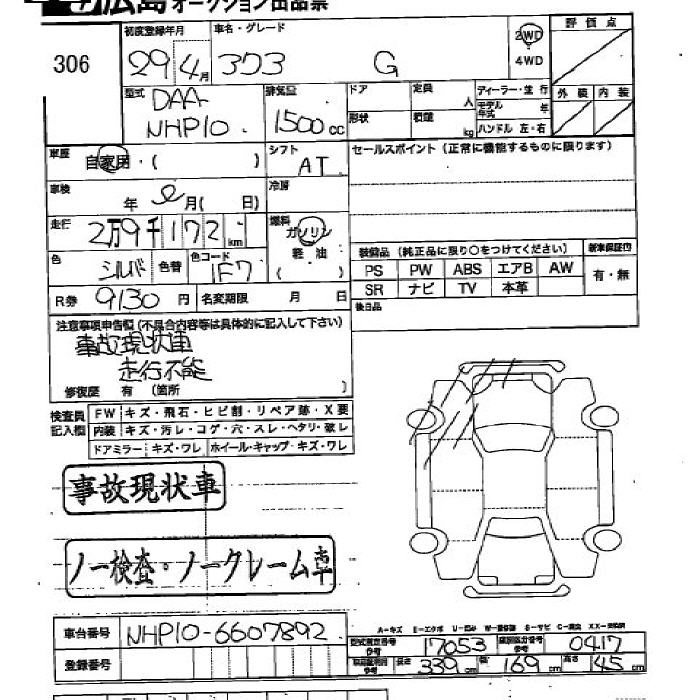 広島オークション出品票
306
初度登録年月 車名・グレード 評価点
29年4月 373 G 2WD 4WD
型式 DAA-NHP10 排気量 1500cc ドア 定員 人 ディーラー・並行 外装 内装
形状 積載 kg モデル年式 年
ハンドル 左・右
車歴 自家用・( ) シフト AT セールスポイント（正常に機能するものに限ります）
車検 年 月( 日) 冷房
走行 2万9千172km 燃料 ガソリン 軽油 ( )
装備品（純正品に限り○をつけてください） 新車保証書
色 シルバ 色替 色コード 1F7 PS PW ABS エアB AW 有・無
R券 9130円 名変期限 月 日 SR ナビ TV 本革
後日品
注意事項申告欄(不具合内容等は具体的に記入して下さい)
事故現状車
走行不能
修復歴 有 (箇所 )
検査員記入欄 FW キズ・飛石・ヒビ割・リペア跡・X要
内装 キズ・汚レ・コゲ・穴・スレ・ヘタリ・破レ
ドアミラー キズ・ワレ ホイール・キャップ・キズ・ワレ
事故現状車
ノー検査・ノークレーム車
A-キズ E-エクボ U-凹み S-サビ
車台番号 NHP10-6607892
型式指定番号 参考 17053 類別区分番号 参考 0417
登録番号
長さ 339cm 幅 169cm 高さ 145cm